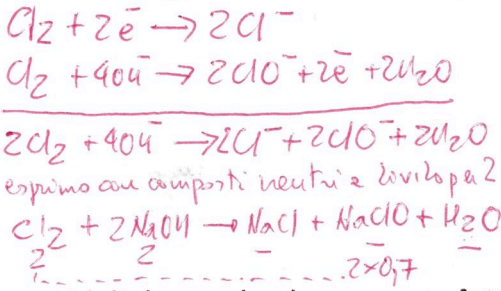 Cl₂ + 2e⁻ → 2Cl⁻
Cl₂ + 4OH⁻ → 2ClO⁻ + 2e⁻ + 2H₂O
2Cl₂ + 4OH⁻ → 2Cl⁻ + 2ClO⁻ + 2H₂O
esprimo con composti neutri e divido per 2
Cl₂ + 2NaOH → NaCl + NaClO + H₂O
2 2 - - -
2×0,7